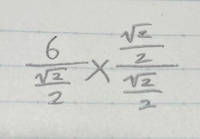 \frac{6}{\frac{\sqrt{2}}{2}} \times \frac{\frac{\sqrt{2}}{2}}{\frac{\sqrt{2}}{2}}